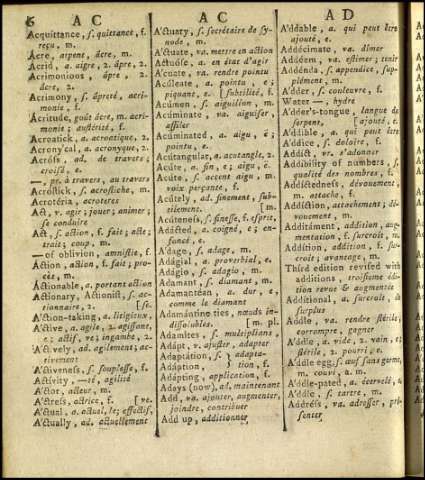 6 A C
A C
A D
Acquittance, ſ. quittance, f.
reçu, m.
Acre, arpent, ácre, m.
Acrid, a. aigre, 2. âpre, 2.
Acrimonious, âpre, 2.
âcre, 2.
Acrimony, ſ. âpreté, acri-
monie, f.
Acritude, goût âcre, m. acri-
monie; auſtérité, f.
Acroatick, a. acroatique, 2.
Acronycal, a. acronyque, 2.
Acróſs, ad. de travers;
croiſé, e.
—, pr. à travers, au travers
Acróſtick, ſ. acroſtiche, m.
Acrotéria, acroteres
Act, v. agir; jouer; animer;
ſe conduire
Act, ſ. action, f. fait; acte;
trait; coup, m.
—of oblivion, amniſtie, f.
Action, action, f. fait; pro-
cès, m.
Actionable, a. portant action
Actionary, Actioniſt, ſ. ac-
tionnaire, 2. [ſe.
A'ction-taking, a. litigieux,
A'ctive, a. agile, 2. agiſſant,
e; actif, ve; ingambe, 2.
A'ctively, ad. agilement; ac-
tivement
A'ctiveneſs, ſ. ſoupleſſe, f.
Activity, —té, agilité
A'ctor, acteur, m.
A'ctreſs, actrice, f. [ve.
A'ctual, a. actuel, le; effectif,
A'ctually, ad. actuellement
A'ctuary, ſ. ſecrétaire de ſy-
node, m.
A'ctuate, va. mettre en action
Actuóſe, a. en état d'agir
A'cuate, va. rendre pointu
A'culeate, a. pointu, e;
piquant, e. [ſubtilité, f.
Acúmen, ſ. aiguillon, m.
Acúminate, va. aiguiſer,
affiler
Acúminated, a. aigu, é;
pointu, e.
Acútangular, a. acutangle, 2.
Acúte, a. fin, e; aigu, é.
Acúte, ſ. accent aigu, m.
voix perçante, f.
Acútely, ad. finement, ſub-
tilement. [m.
Acúteneſs, ſ. fineſſe, f. eſprit,
Adácted, a. coigné, e; en-
foncé, e.
A'dage, ſ. adage, m.
Adágial, a. proverbial, e.
Adágio, ſ. adagio, m.
Adamant, ſ. diamant, m.
Adamantéan, a. dur, e,
comme le diamant
Adamantine ties, nœuds in-
diſſolubles. [m. pl.
Adamites, ſ. multiplians,
Adápt, v. ajuſter, adapter
Adaptation, ſ. } adapta-
Adaption } tion, f.
Adápting, application, f.
Adays (now), ad. maintenant
Add, va. ajouter, augmenter,
joindre, contribuer
Add up, additionner
A'ddable, a. qui peut être
ajouté, e.
Addécimate, va. dîmer
Addéem, va. eſtimer; tenir
Addénda, ſ. appendice, ſup-
plément, m.
A'dder, ſ. couleuvre, f.
Water —, hydre
A'dder's-tongue, langue de
ſerpent, [ajouté, e.
A'ddible, a. qui peut être
A'ddice, ſ. doloire, f.
Addíct, vr. s'adonner
Addibility of numbers, ſ.
qualité des nombres, f.
Addíctedneſs, dévouement,
m. attache, f.
Addíction, attachement; dé-
vouement, m.
Additáment, addition, aug-
mentation, f. ſurcroît, m.
Addition, addition, f. ſur-
croît; avantage, m.
Third edition revised with
additions, troiſieme édi-
tion revue & augmentée
Additional, a. ſurcroît, de
ſurplus
Addle, va. rendre ſtérile;
corrompre, gagner
A'ddle, a. vide, 2. vain, e;
ſtérile, 2. pourri, e.
A'ddle egg, ſ. œuf ſans germe,
m. couvi, a. m.
A'ddle-pated, a. écervelé, e
A'ddle, ſ. tartre, m.
Addréſs, va. adreſſer, pré-
ſenter